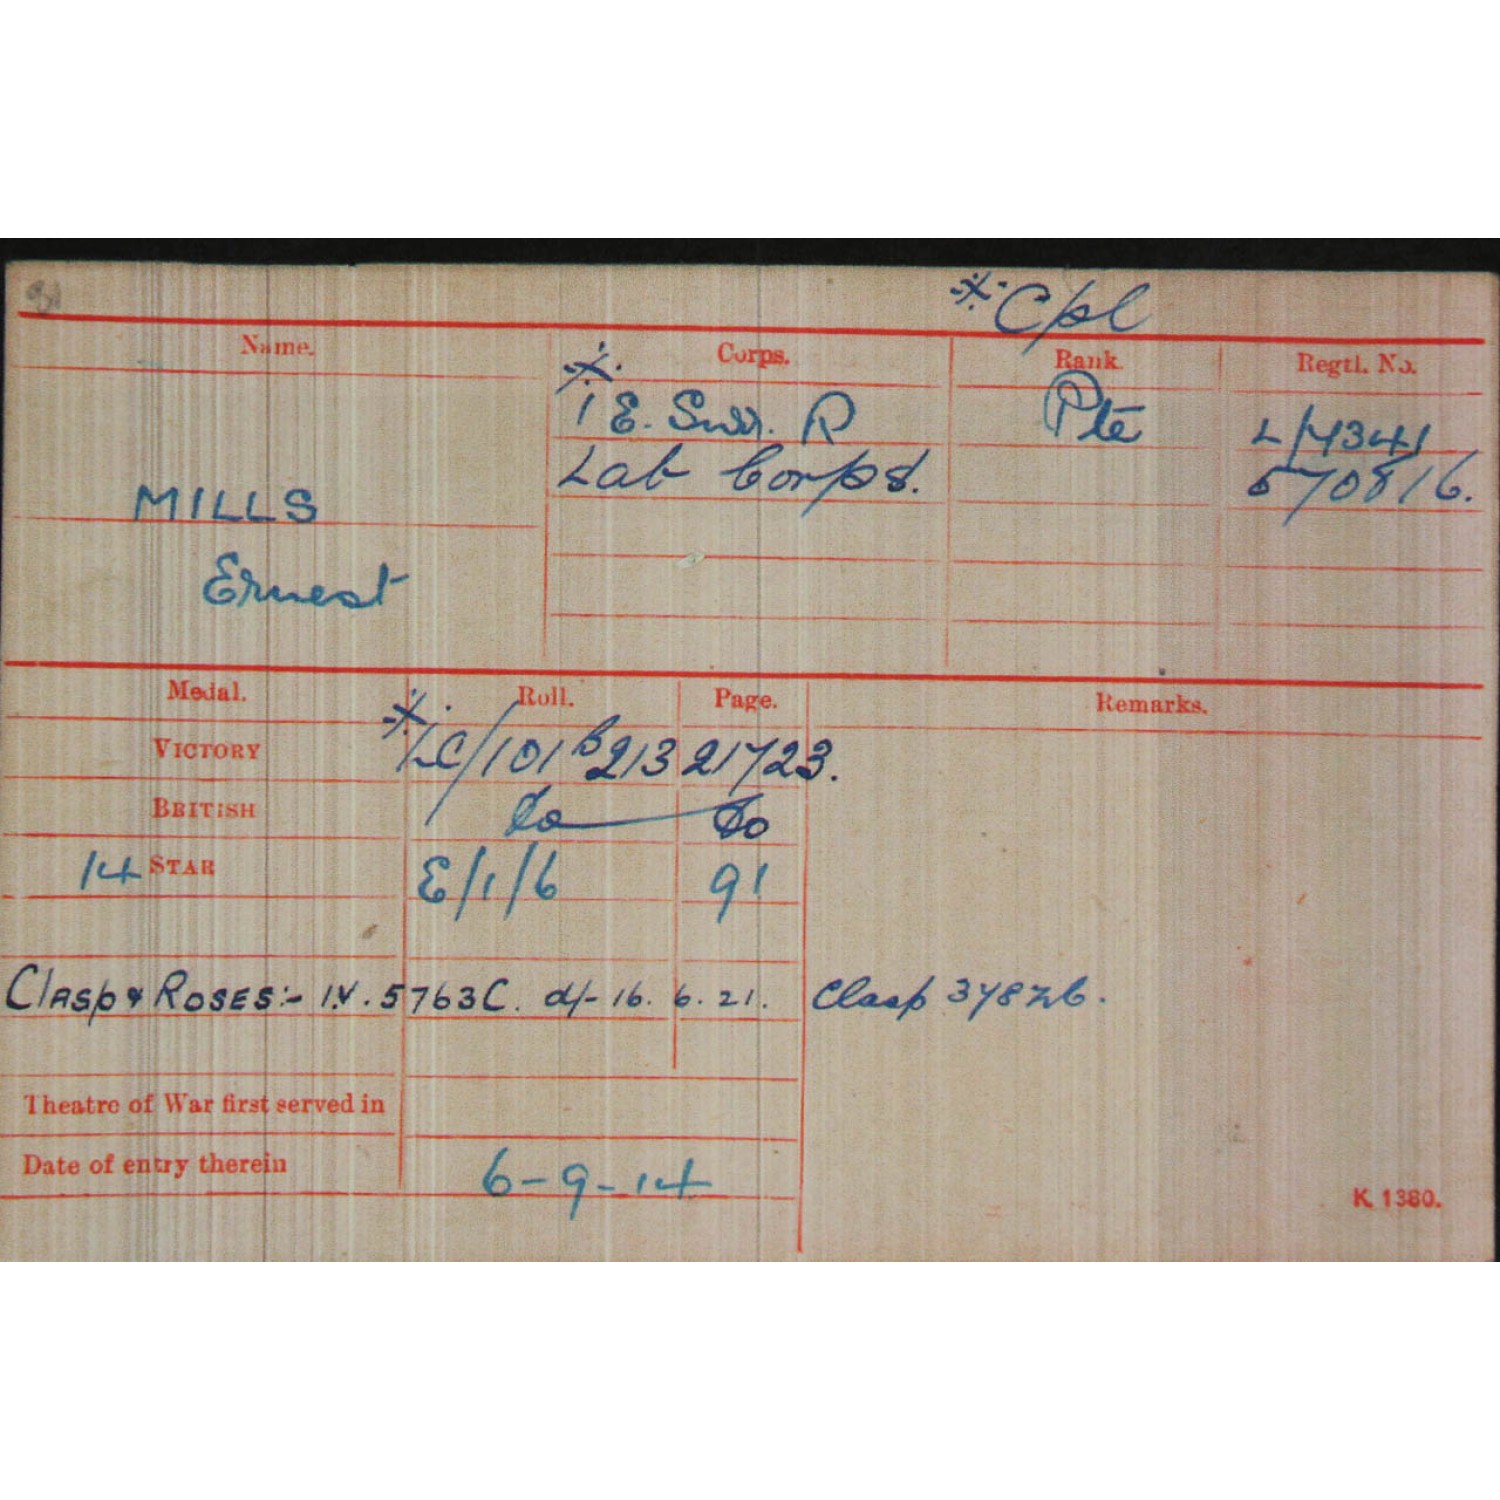 ※ Cpl
Name. Corps. Rank. Regtl. No.
※
1 E. Surr. R Pte L/7341
Lab Corps. 570816.
MILLS
Ernest
Medal. Roll. Page. Remarks.
※
VICTORY LC/101B213 21723.
BRITISH do do
14 STAR E/1/6 91
Clasp & ROSES:- I.V. 5763C. d/- 16. 6. 21. Clasp
Theatre of War first served in
Date of entry therein 6-9-14
K. 1380.